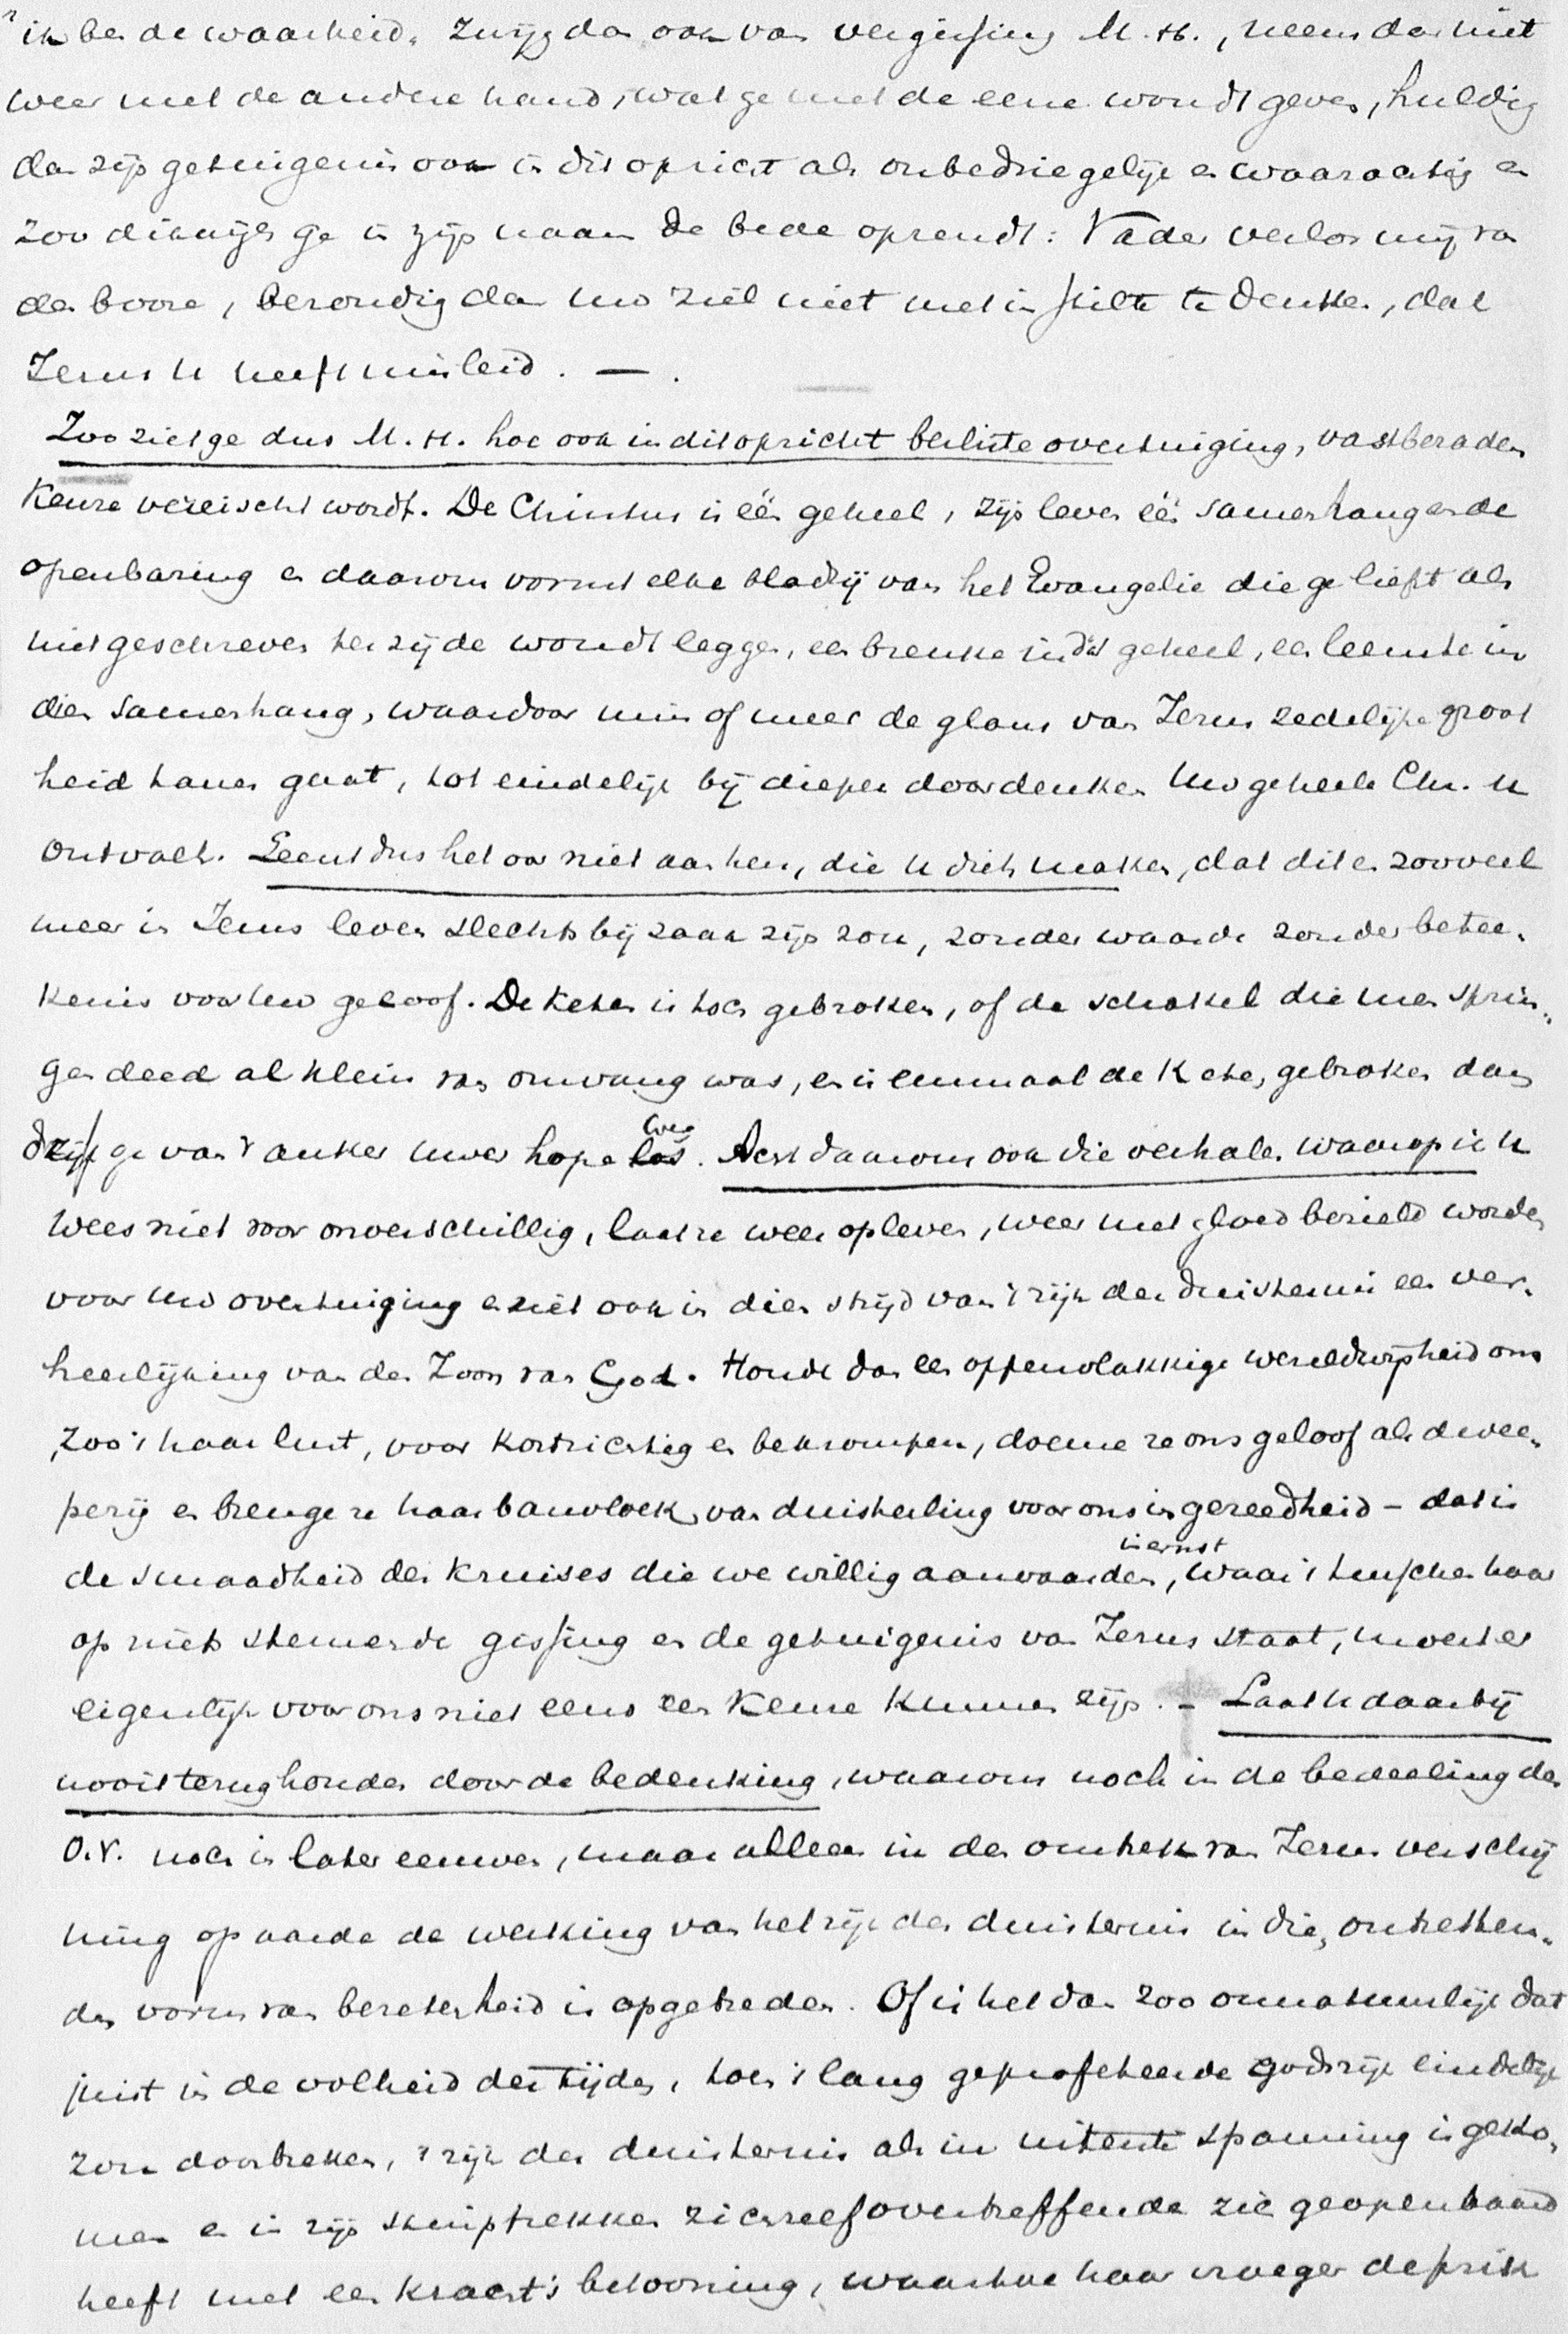 "ik ben de waarheid. Zwijg dan ook van vergissing M. H., neem dan niet
weer met de andere hand, wat ge met de eene woudt geven, huldig
dan zijn getuigenis ook in dit opzicht als onbedriegelijk en waarachtig en
zoo dikwijls ge in zijn naam de bede opzendt: Vader verlos mij van
den booze, bezondig dan uw ziel niet met in stilte te denken, dat
Jezus u heeft misleid. — .
Zoo ziet ge dus M. H. hoe ook in dit opzicht besliste overtuiging, vastberaden
keuze vereischt wordt. De Christus is één geheel, zijn leven één samenhangende
openbaring en daarom vormt elke bladzij van het Evangelie die ge liefst als
niet geschreven ter zijde woudt leggen, een breuke in dat geheel, een leemte in
dien samenhang, waardoor min of meer de glans van Jezus zedelijke groot
heid tanen gaat, tot eindelijk bij dieper doordenken Uw geheele Chr. u
ontvalt. Leent dus het oor niet aan hen, die u diets maken, dat dit en zooveel
meer in Jezus leven slechts bijzaak zijn zou, zonder waarde zonder betee-
kenis voor Uw geloof. De keten is toch gebroken, of de schakel die men sprin-
gen deed al klein van omvang was, en is eenmaal de keten gebroken dan
drijft ge van 't anker uwer hope weg. Acht daarom ook die verhalen waarop ik u
wees niet voor onverschillig, laat ze weer opleven, weer met gloed bezield worden
voor Uw overtuiging en ziet ook in dien strijd van 't rijk der duisternis een ver-
heerlijking van den Zoon van God. Houde dan een oppervlakkige wereldwijsheid ons
zoo 't haar lust, voor kortzichtig en bekrompen, doeme ze ons geloof als dwee-
perij en brenge ze haar banvloek van duisterling voor ons in gereedheid – dat is
de smaadheid des kruises die we willig aanvaarden, waar 't in ernst tusschen haar
op niets steunende gissing en de getuigenis van Jezus staat, moest er
eigenlijk voor ons niet eens een keuze kunnen zijn. – Laat u daarbij
nooit terughouden door de bedenking, waarom noch in de bedeeling des
O. V. noch in later eeuwen, maar alleen in den omtrek van Jezus verschij
ning op aarde de werking van het rijk der duisternis in die, ontzetten-
den vorm van bezetenheid is opgetreden. Of is het dan zoo onnatuurlijk dat
juist in de volheid der tijden, toen 't lang geprofeteerde godsrijk eindelijk
zou doorbreken, 't rijk der duisternis als in uiterste spanning is geko-
men en in zijn stuiptrekken zichzelf overtreffende zich geopenbaard
heeft met een kracht's betooning, waartoe haar vroeger de prik